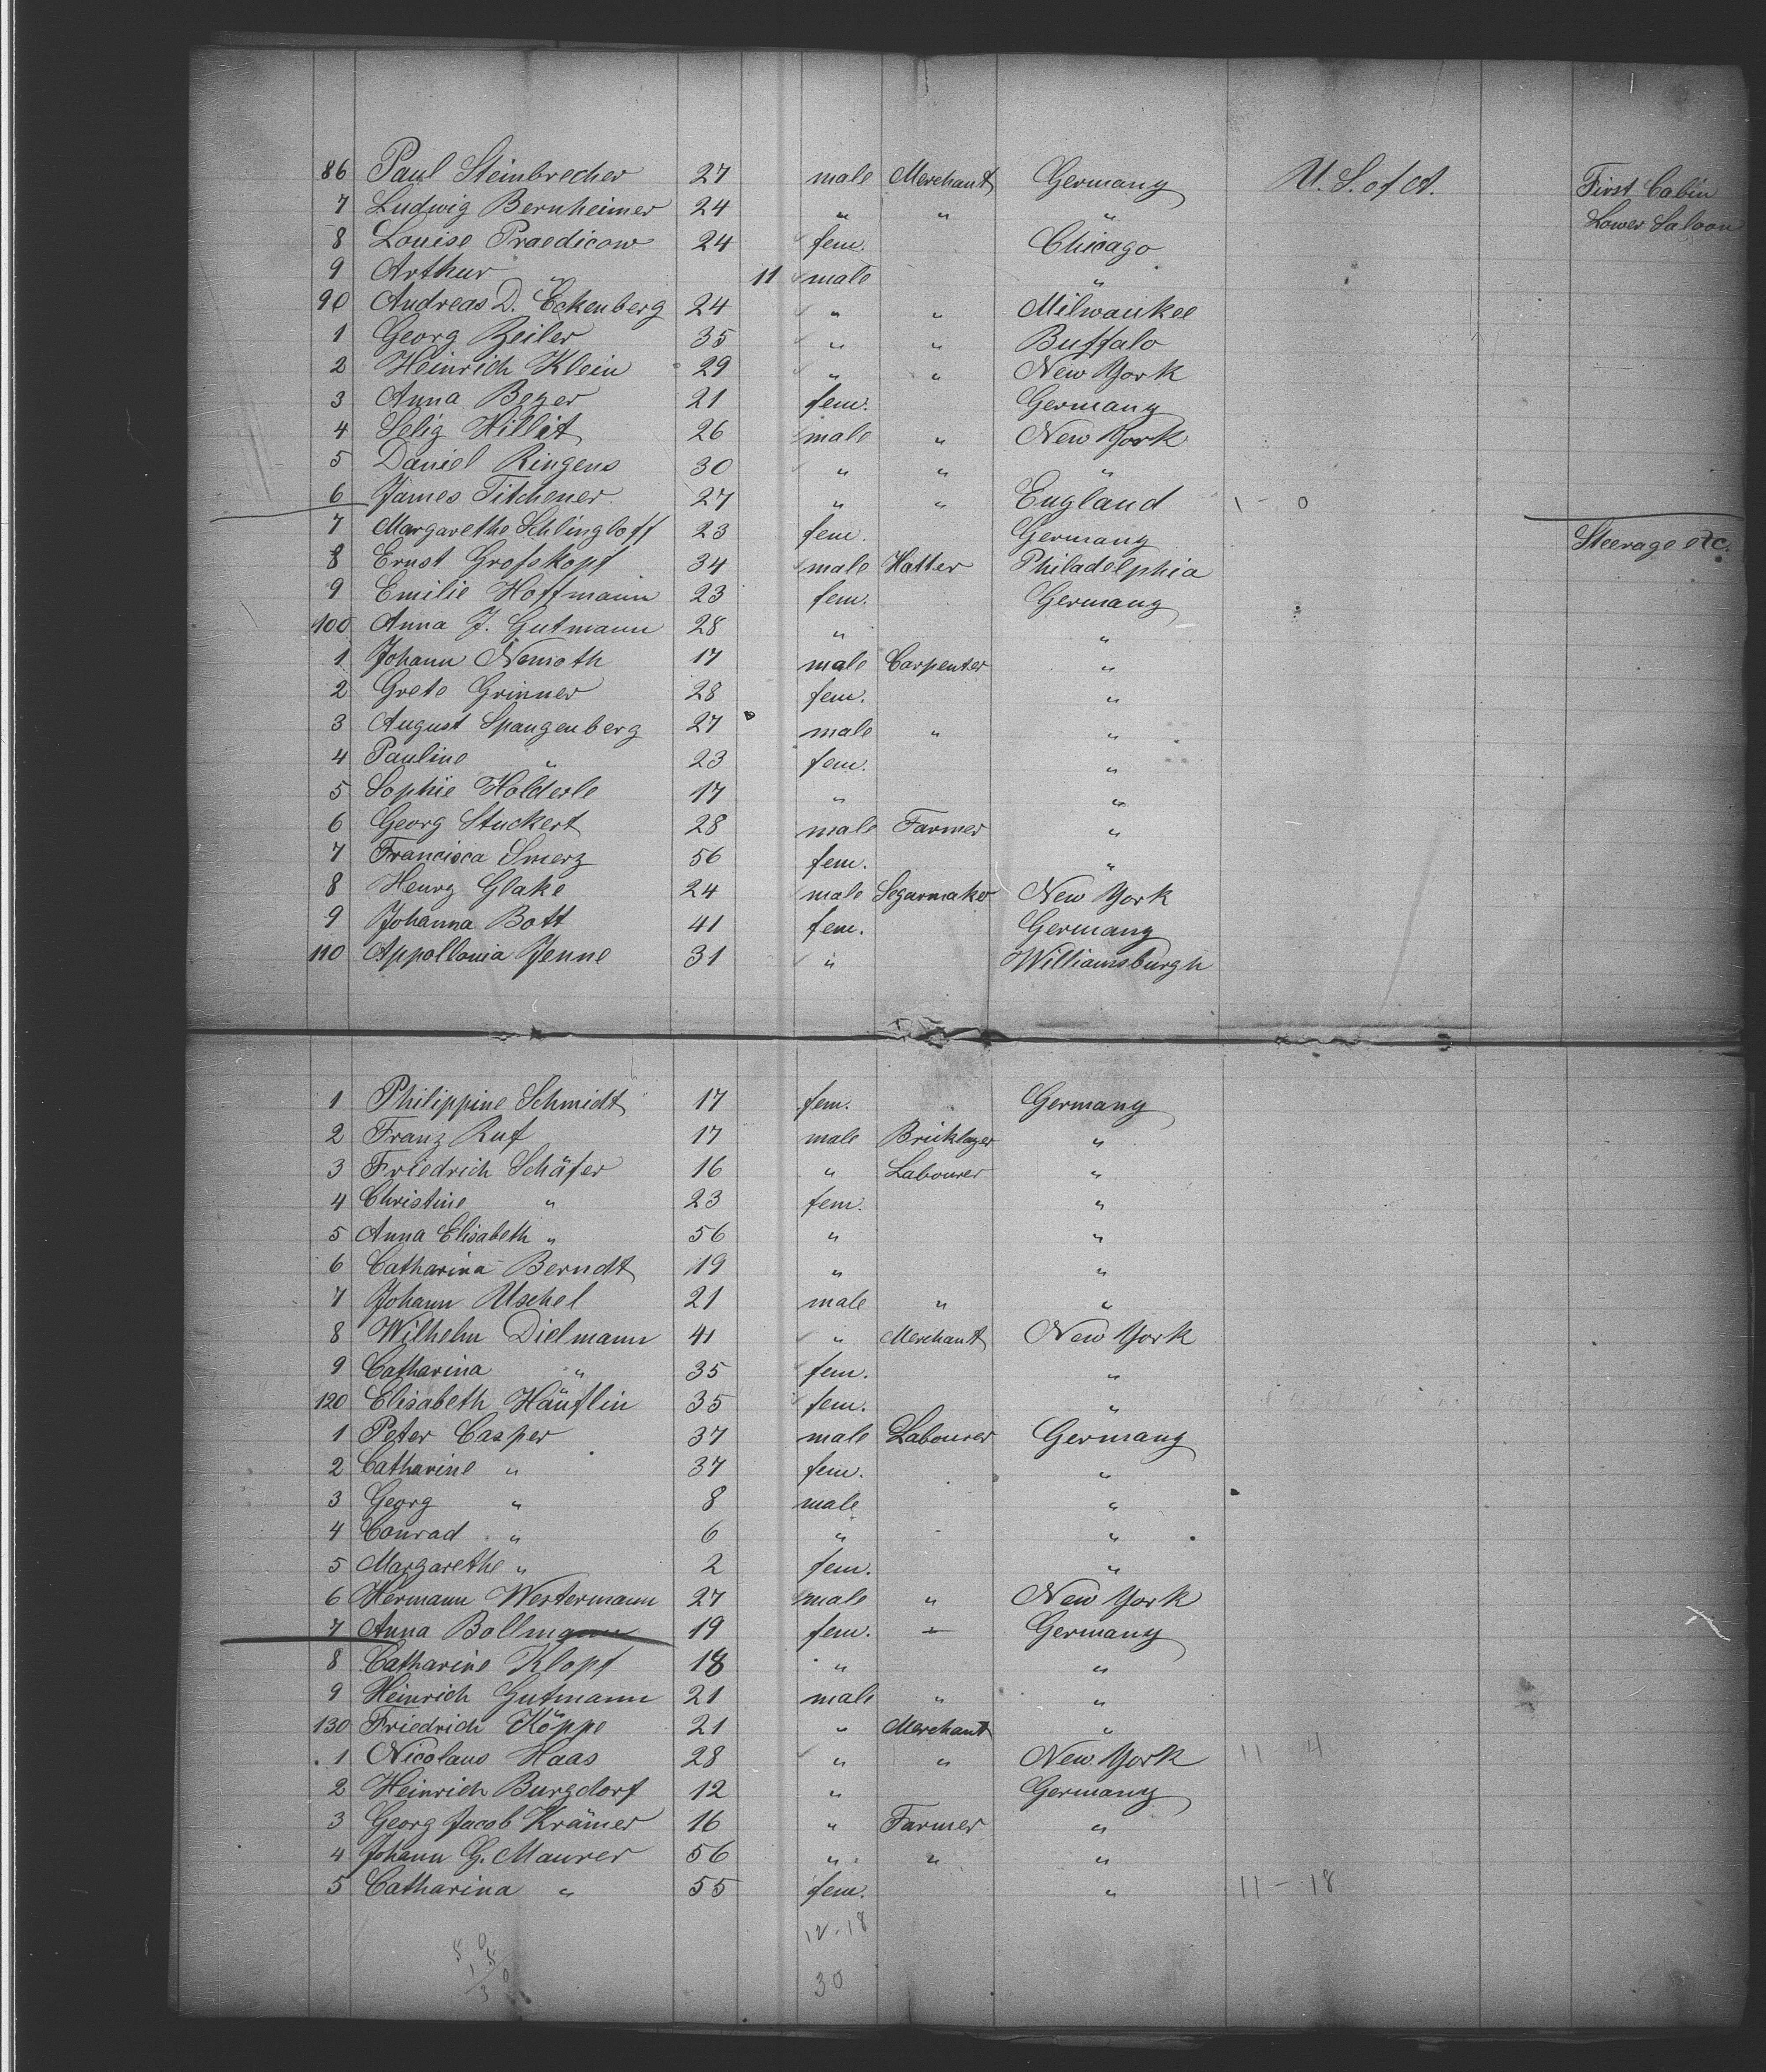 86 Paul Steinbrecher 27 male Merchant Germany U. S. of A. First Cabin
7 Ludwig Bernheimer 24 " " " Lower Saloon
8 Louise Praedicow 24 fem. Chicago
9 Arthur " 11 male "
90 Andreas D. Eckenberg 24 " " Milwaukee
1 Georg Zeiler 35 " " Buffalo
2 Heinrich Klein 29 " " New York
3 Anna Beyer 21 fem. Germany
4 Selig Hillit 26 male " New York
5 Daniel Ringens 30 " " "
6 James Titchener 27 " " England 1 - 0
7 Margarethe Schlingloff 23 fem. Germany Steerage etc.
8 Ernst Grofskopf 34 male Hatter Philadelphia
9 Emilie Hoffmann 23 fem. Germany
100 Anna J. Gutmann 28 " "
1 Johann Nemoth 17 male Carpenter "
2 Grete Grinner 28 fem. "
3 August Spangenberg 27 male " "
4 Pauline " 23 fem. "
5 Sophie Holderle 17 " "
6 Georg Stuckert 28 male Farmer "
7 Francisca Smerz 56 fem. "
8 Henry Glake 24 male Segarmaker New York
9 Johanna Bott 41 fem. Germany
110 Appollonia Jenne 31 " Williamsburgh
1 Philippine Schmidt 17 fem. Germany
2 Franz Ruf 17 male Bricklayer "
3 Friedrich Schäfer 16 " Labourer "
4 Christine " 23 fem. "
5 Anna Elisabeth " 56 " "
6 Catharina Berndt 19 " "
7 Johann Uschel 21 male " "
8 Wilhelm Dielmann 41 " Merchant New York
9 Catharina " 35 fem. "
120 Elisabeth Häuflin 35 fem. "
1 Peter Casper 37 male Labourer Germany
2 Catharine " 37 fem. "
3 Georg " 8 male "
4 Conrad " 6 " "
5 Margarethe " 2 fem. "
6 Hermann Westermann 27 male " New York
7 Anna Bollmann 19 fem. Germany
8 Catharine Klopf 18 " "
9 Heinrich Gutmann 21 male " "
130 Friedrich Köppe 21 " Merchant "
1 Nicolaus Haas 28 " " New York 11 4
2 Heinrich Burgdorf 12 " Germany
3 Georg Jacob Krämer 16 " Farmer "
4 Johann G. Maurer 56 " " "
5 Catharina " 55 fem. " 11 - 18
12-18
30